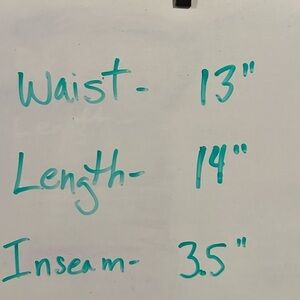 Waist- 13"
Length- 14"
Inseam- 3.5"